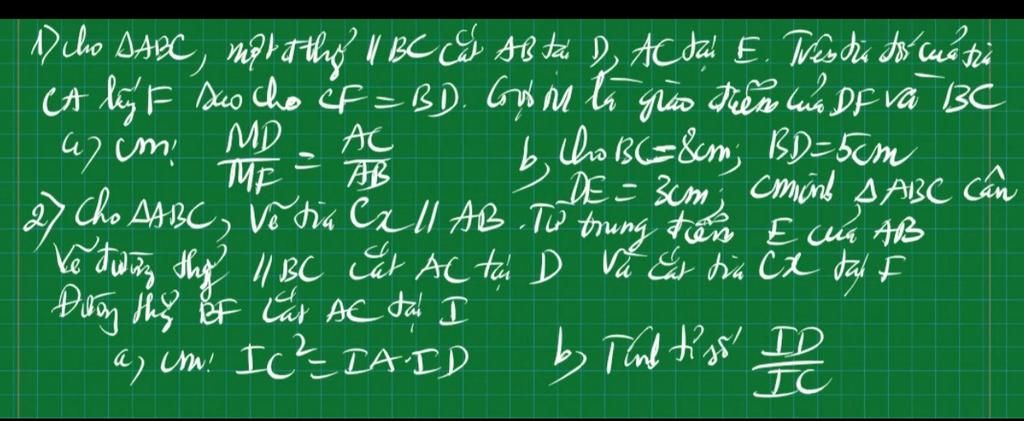 1) Cho ΔABC, một đ thg̉ // BC cắt AB tại D, AC tại E. Trên tia đối của tia
CA lấy F sao cho CF = BD. Gọi M là giao điểm của DF và BC
a) cm: MD/MF = AC/AB b, Cho BC = 8cm; BD = 5cm
DE = 3cm; cminh ΔABC cân
2) Cho ΔABC, Vẽ tia Cx // AB. Từ trung điểm E của AB
Vẽ đường thg̉ // BC cắt AC tại D Và cắt tia Cx tại F
Đường thg̉ BF cắt AC tại I
a, cm: IC² = IA.ID b, Tính tỉ số ID/IC